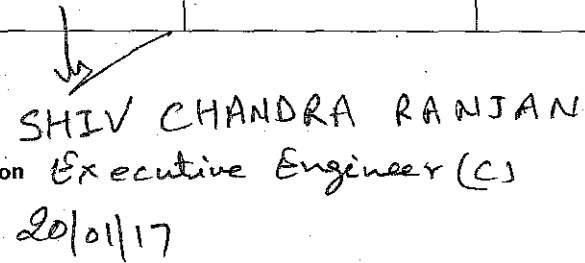 SHIV CHANDRA RANJAN
on Executive Engineer (C)
20/01/17